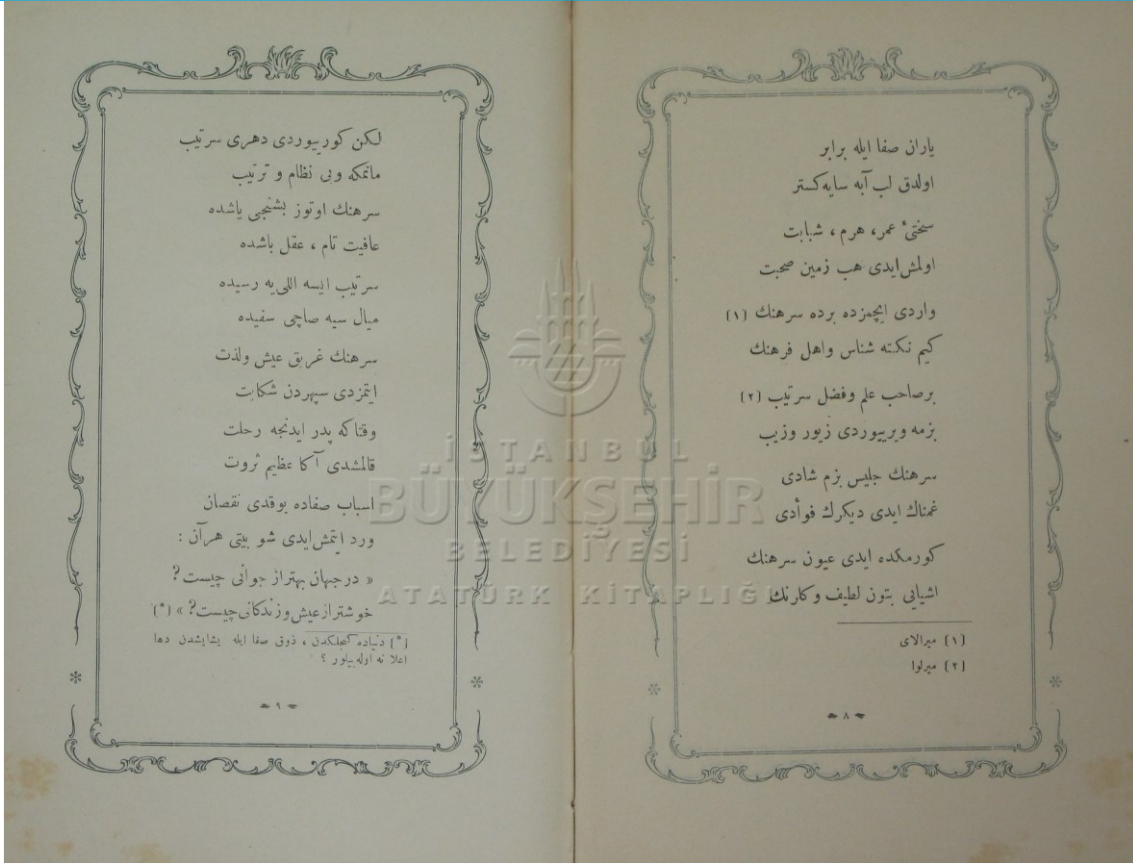 یاران صفا ایله برابر
اولدق لب آبه سایه کستر
سختیٔ عمر، هرم، شبابت
اولمش ایدی هب زمین صحبت
واردی ایچمزده برده سرهنك [١]
کیم نکته شناس واهل فرهنك
برصاحب علم وفضل سرتیب [٢]
بزمه ویرییوردی زیور وزیب
سرهنك جلیس بزم شادی
غمناك ایدی دیکرك فوأدی
کورمکده ایدی عیون سرهنك
اشیایی بتون لطیف وکلرنك
[١] میرالای
[٢] میرلوا
٨
لکن کورییوردی دهری سرتیب
ماتمکه وبی نظام و ترتیب
سرهنك اوتوز بشنجی یاشده
عافیت تام ، عقل باشده
سرتیب ایسه اللی یه رسیده
میال سیه صاچی سفیده
سرهنك غریق عیش ولذت
ایتمزدی سپهردن شکایت
وقتاکه پدر ایدنجه رحلت
قالمشدی آکا عظیم ثروت
اسباب صفاده یوقدی نقصان
ورد ایتمش ایدی شو بیتی هرآن :
« درجهان بهتراز جوانی چیست ?
خوشتراز عیش و زندکانی چیست ? » [*]
[*] دنیاده کنجلکدن ، ذوق صفا ایله یشایشدن دها
اعلا نه اوله بیلور ؟
٩
İSTANBUL
BÜYÜKŞEHİR
BELEDİYESİ
ATATÜRK KİTAPLIĞI